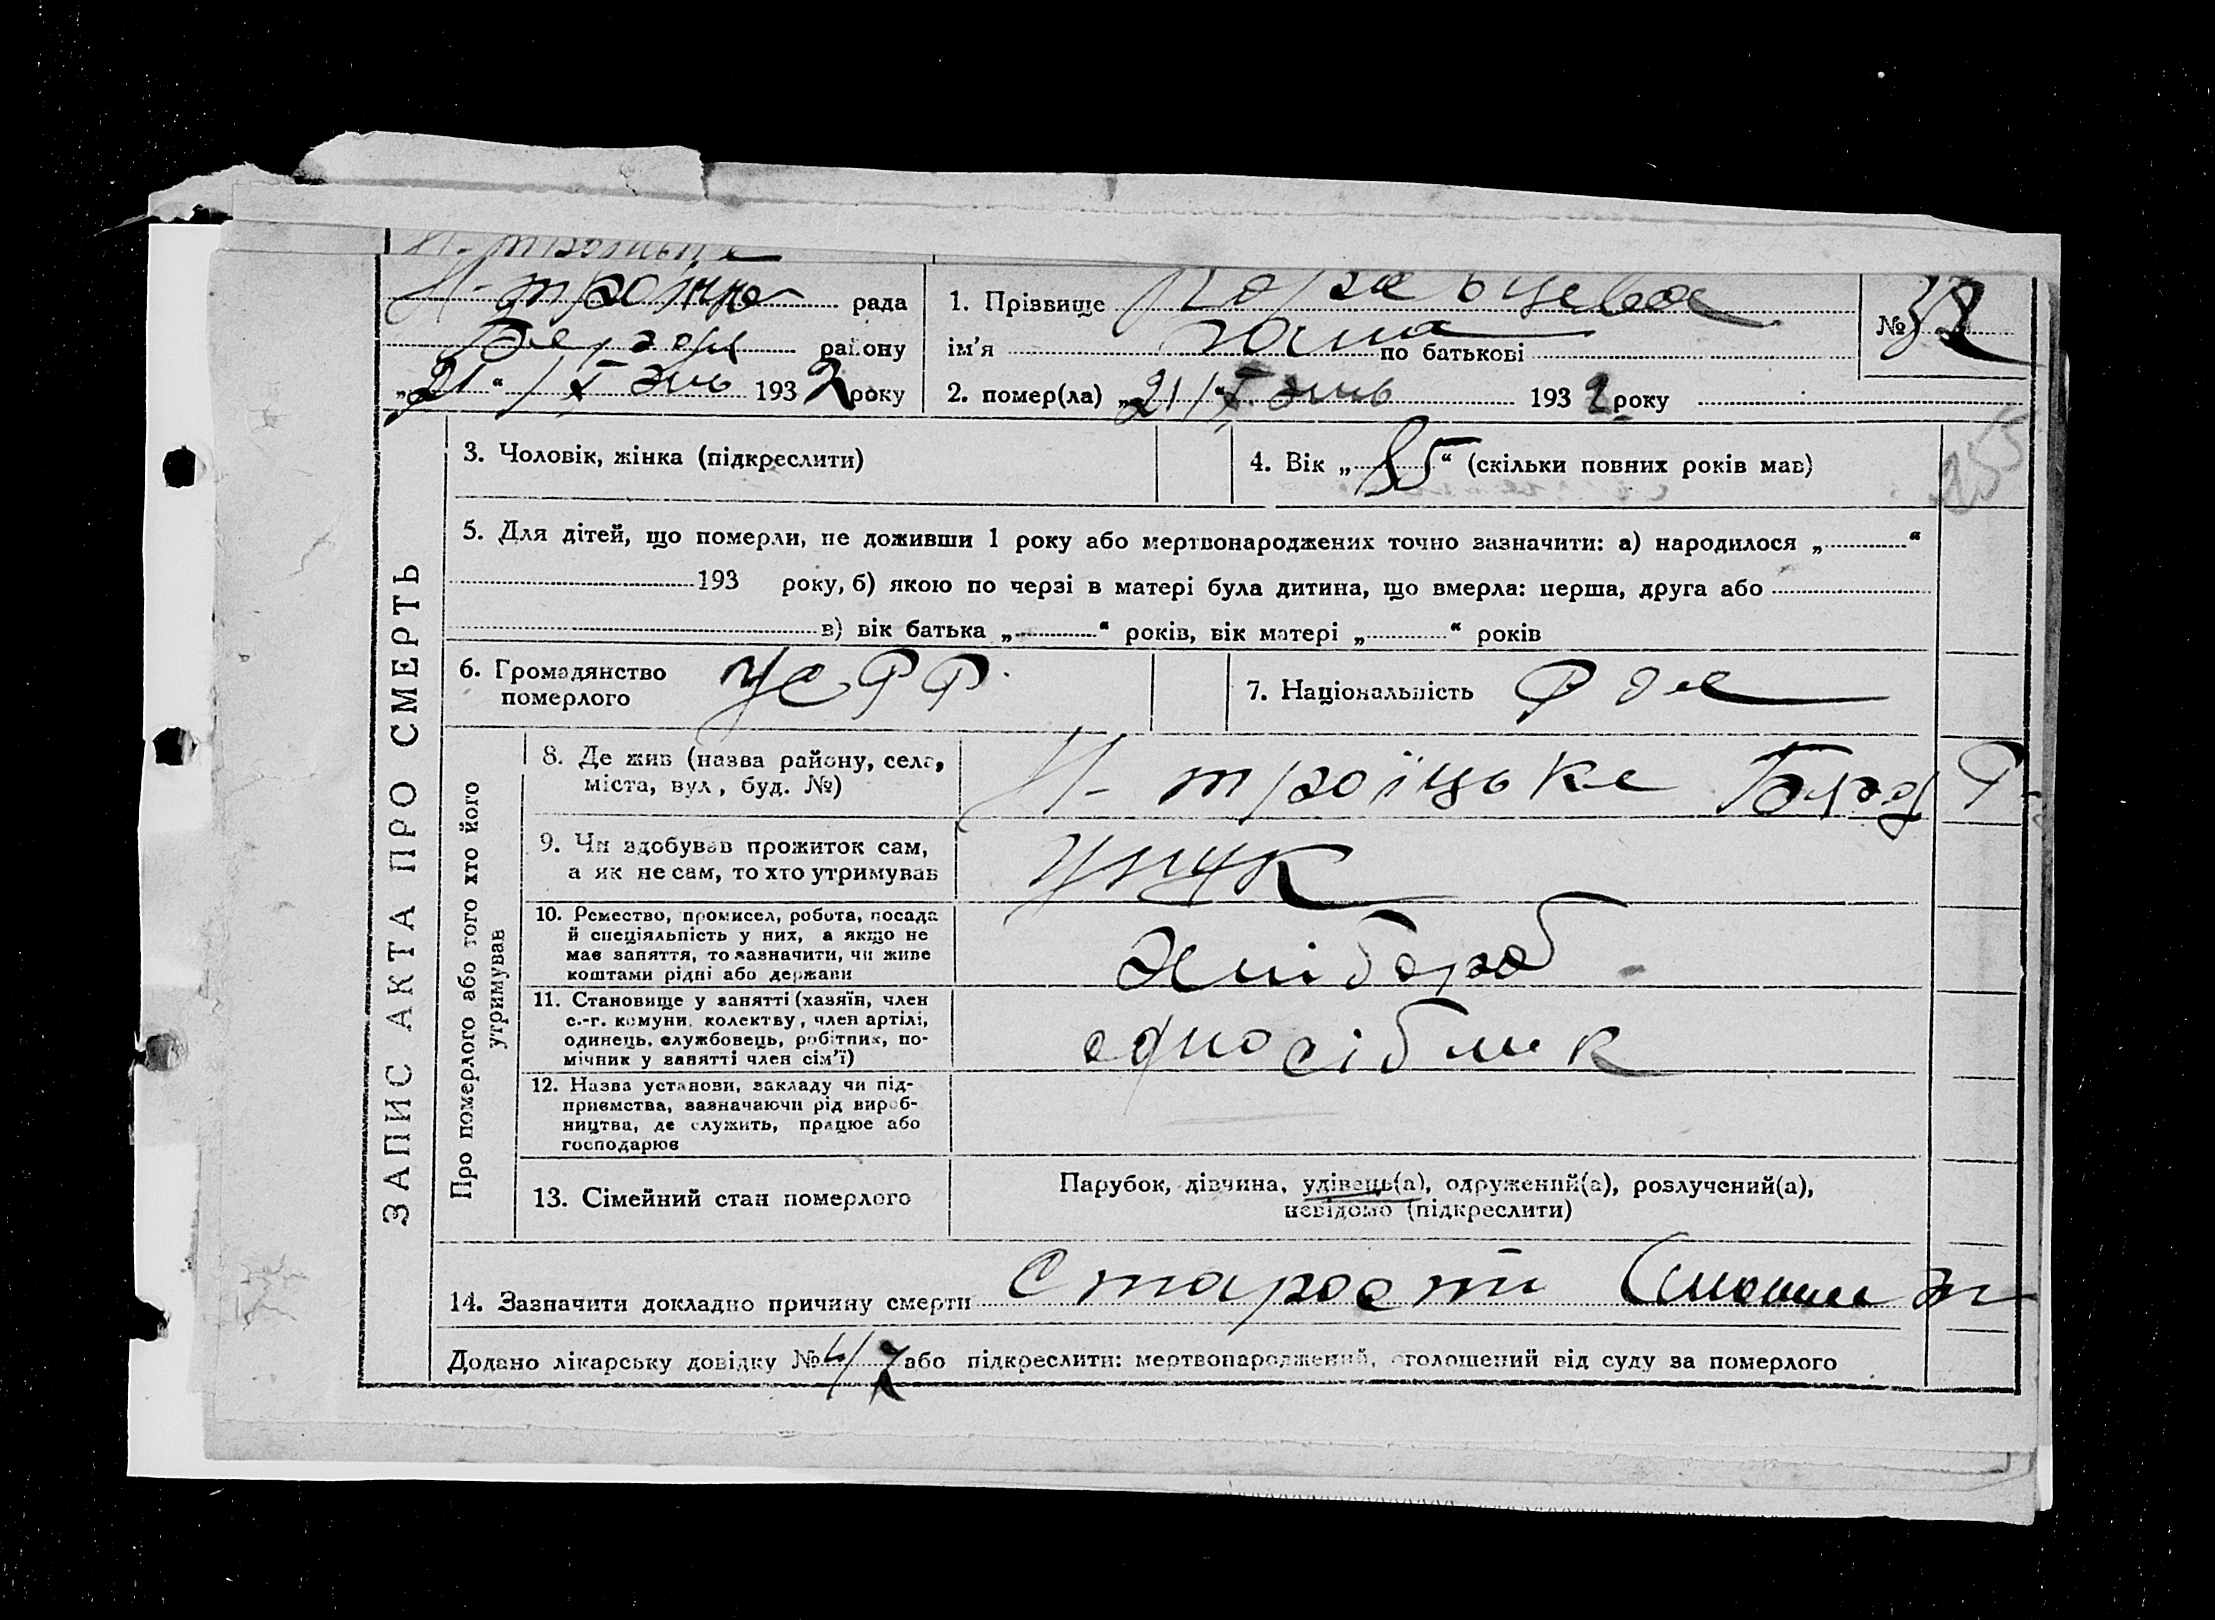 Н-троїцька рада
району
„21“ / X дня 1932 року
1. Прізвище
ім’я по батькові
2. помер(ла) „21/X дня 1932 року
№
ЗАПИС АКТА ПРО СМЕРТЬ
3. Чоловік, жінка (підкреслити)
4. Вік „85“ (скільки повних років мав)
5. Для дітей, що померли, не доживши 1 року або мертвонароджених точно зазначити: а) народилося „ “
193 року, б) якою по черзі в матері була дитина, що вмерла: перша, друга або
в) вік батька „ “ років, вік матері „ “ років
6. Громадянство
померлого
УСРР
7. Національність
Про померлого або того хто його
утримував
8. Де жив (назва району, села,
міста, вул., буд. №)
Н-троїцьке
9. Чи здобував прожиток сам,
а як не сам, то хто утримував
унук
10. Ремество, промисел, робота, посада
й спеціяльність у них, а якщо не
має заняття, то зазначити, чи живе
коштами рідні або держави
хлібороб
11. Становище у занятті (хазяїн, член
с.-г. комуни, колектву, член артілі,
одинець, службовець, робітник, по-
мічник у занятті член сім’ї)
одноосібник
12. Назва установи, закладу чи під-
приємства, зазначаючи рід вироб-
ництва, де служить, працює або
господарює
13. Сімейний стан померлого
Парубок, дівчина, удівець(а), одружений(а), розлучений(а),
невідомо (підкреслити)
14. Зазначити докладно причину смерти Старости
Додано лікарську довідку № 4/7 або підкреслити: мертвонароджений, оголошений від суду за померлого